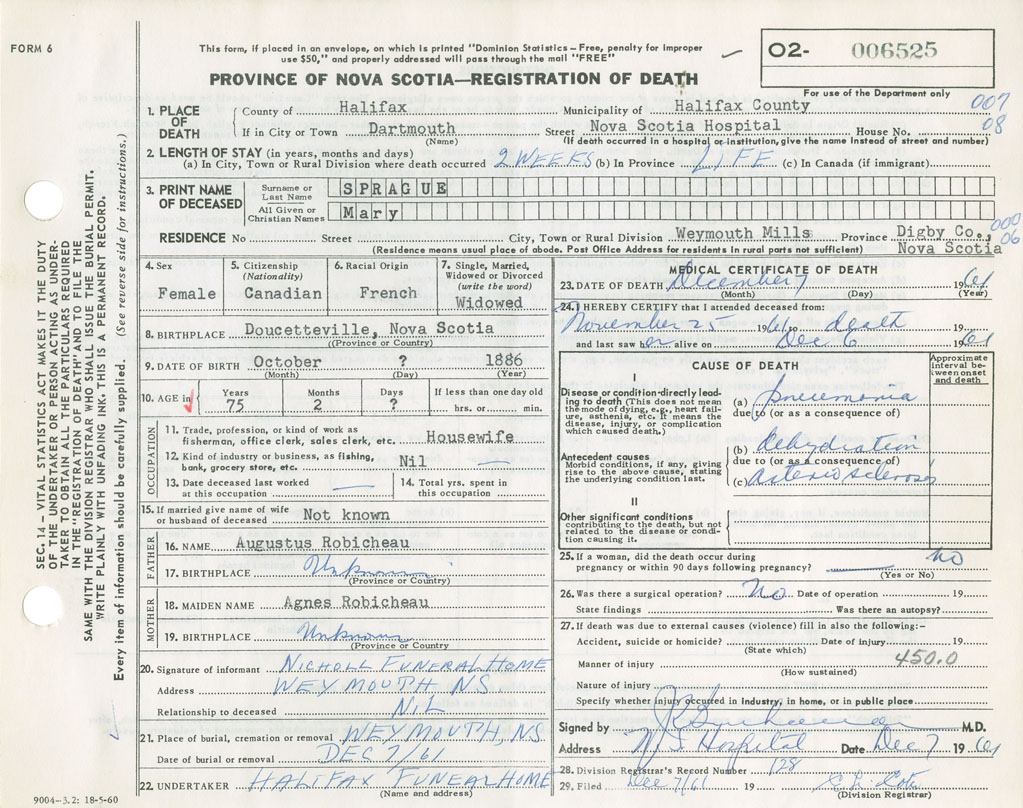 FORM 6
This form, if placed in an envelope, on which is printed "Dominion Statistics – Free, penalty for improper
use $50," and properly addressed will pass through the mail "FREE"
PROVINCE OF NOVA SCOTIA—REGISTRATION OF DEATH
O2- 006525
For use of the Department only
007
08
1. PLACE OF DEATH
County of Halifax Municipality of Halifax County
If in City or Town Dartmouth Street Nova Scotia Hospital House No.
(Name) (If death occurred in a hospital or institution, give the name instead of street and number)
2. LENGTH OF STAY (in years, months and days)
(a) In City, Town or Rural Division where death occurred 2 WEEKS (b) In Province LIFE (c) In Canada (if immigrant)
3. PRINT NAME OF DECEASED
Surname or Last Name SPRAGUE
All Given or Christian Names Mary
000
06
RESIDENCE No Street City, Town or Rural Division Weymouth Mills Province Digby Co.,
(Residence means usual place of abode. Post Office Address for residents in rural parts not sufficient) Nova Scotia
4. Sex
Female
5. Citizenship
(Nationality)
Canadian
6. Racial Origin
French
7. Single, Married,
Widowed or Divorced
(write the word)
Widowed
8. BIRTHPLACE Doucetteville, Nova Scotia
(Province or Country)
9. DATE OF BIRTH October ? 1886
(Month) (Day) (Year)
10. AGE in Years 75 Months 2 Days ? If less than one day old
hrs. or min.
OCCUPATION
11. Trade, profession, or kind of work as
fisherman, office clerk, sales clerk, etc. Housewife
12. Kind of industry or business, as fishing,
bank, grocery store, etc. Nil —
13. Date deceased last worked
at this occupation —
14. Total yrs. spent in
this occupation
15. If married give name of wife
or husband of deceased Not known
FATHER
16. NAME Augustus Robicheau
17. BIRTHPLACE Unknown
(Province or Country)
MOTHER
18. MAIDEN NAME Agnes Robicheau
19. BIRTHPLACE Unknown
(Province or Country
20. Signature of informant NICHOLL FUNERAL HOME
Address WEYMOUTH NS
Relationship to deceased NIL
21. Place of burial, cremation or removal WEYMOUTH, NS
Date of burial or removal DEC 7/61
22. UNDERTAKER HALIFAX FUNERAL HOME
(Name and address)
MEDICAL CERTIFICATE OF DEATH
23. DATE OF DEATH December 7 1961
(Month) (Day) (Year)
24. I HEREBY CERTIFY that I attended deceased from:
November 25 1961 to death 19
and last saw her alive on Dec 6 1961
CAUSE OF DEATH
Approximate
interval between
onset
and death
I
Disease or condition directly leading to death (This does not mean
the mode of dying, e.g., heart failure, asthenia, etc. It means the
disease, injury, or complication
which caused death.)
(a) Pneumonia
due to (or as a consequence of)
Antecedent causes
Morbid conditions, if any, giving
rise to the above cause, stating
the underlying condition last.
(b) dehydration
due to (or as a consequence of)
(c) arteriosclerosis
II
Other significant conditions
contributing to the death, but not
related to the disease or condition causing it.
25. If a woman, did the death occur during
pregnancy or within 90 days following pregnancy? no
(Yes or No)
26. Was there a surgical operation? No Date of operation 19
State findings Was there an autopsy?
27. If death was due to external causes (violence) fill in also the following:–
Accident, suicide or homicide? Date of injury 19
(State which)
450.0
Manner of injury
(How sustained)
Nature of injury
Specify whether injury occurred in industry, in home, or in public place
Signed by M.D.
Address N.S. Hospital Date Dec 7 1961
28. Division Registrar's Record Number 128
29. Filed Dec 7/61 19
(Division Registrar)
SEC. 14 – VITAL STATISTICS ACT MAKES IT THE DUTY
OF THE UNDERTAKER OR PERSON ACTING AS UNDERTAKER TO OBTAIN ALL THE PARTICULARS REQUIRED
IN THE "REGISTRATION OF DEATH" AND TO FILE THE
SAME WITH THE DIVISION REGISTRAR WHO SHALL ISSUE THE BURIAL PERMIT.
WRITE PLAINLY WITH UNFADING INK. THIS IS A PERMANENT RECORD.
Every item of information should be carefully supplied. (See reverse side for instructions.)
9004–3.2: 18-5-60